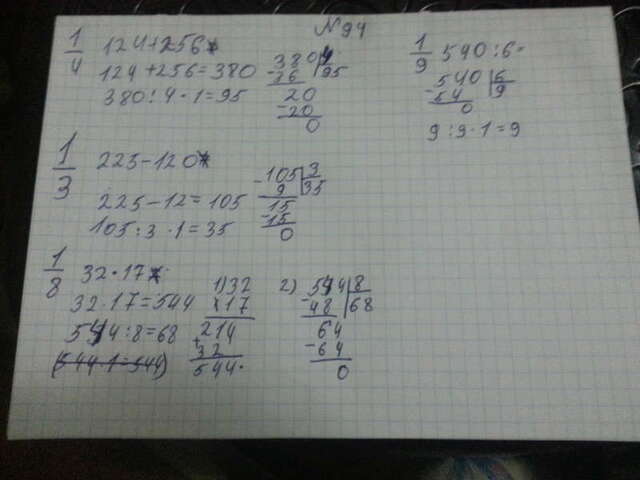 N94
1/4 124+256
124+256=380
380:4·1=95
380 4
-36 95
20
-20
0
1/3 223-120
225-12=105
105:3·1=35
-105 3
9 35
15
-15
0
1/8 32·17
32·17=544
544:8=68
(544·1=544)
1) 32
×17
214
+32
544.
2) 544 8
-48 68
64
-64
0
1/9 540:6=
-540 6
54 9
0
9:9·1=9